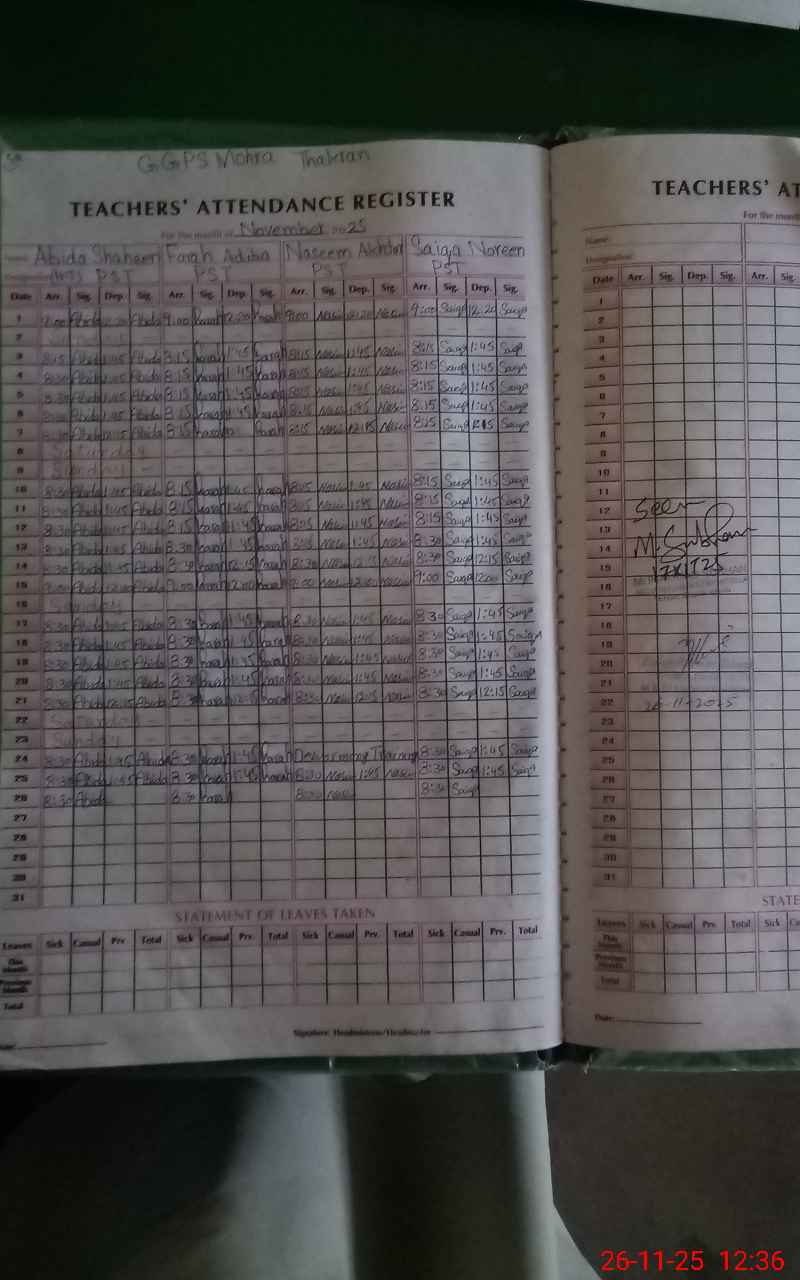 GGPS Mohra Thakran
TEACHERS' ATTENDANCE REGISTER
For the month of November 2025
Name: Abida Shaheen Farah Adiba Naseem Akhtar Saiqa Noreen
(HT) PST PST PST PST
Date Arr. Sig. Dep. Sig. Arr. Sig. Dep. Sig. Arr. Sig. Dep. Sig. Arr. Sig. Dep. Sig.
1 9:00 Abida 12:20 Abida 9:00 Farah 12:20 Farah 9:00 Nasim 12:20 Nasim 9:00 Saiqa 12:20 Saiqa
2
3 8:15 Abida 1:45 Abida 8:15 Farah 1:45 Farah 8:15 Nasim 1:45 Nasim 8:15 Saiqa 1:45 Saiqa
4 8:30 Abida 1:45 Abida 8:15 Farah 1:45 Farah 8:15 Nasim 1:45 Nasim 8:15 Saiqa 1:45 Saiqa
5 8:30 Abida 1:45 Abida 8:15 Farah 1:45 Farah 8:15 Nasim 1:45 Nasim 8:15 Saiqa 1:45 Saiqa
6 8:30 Abida 1:45 Abida 8:15 Farah 1:45 Farah 8:15 Nasim 1:45 Nasim 8:15 Saiqa 1:45 Saiqa
7 8:30 Abida Abida 8:15 Farah Farah 8:15 Nasim 12:15 Nasim 8:15 Saiqa Saiqa
8 Saturday
9 Sunday
10 8:30 Abida 1:45 Abida 8:15 Farah 1:45 Farah 8:15 Nasim 1:45 Nasim 8:15 Saiqa 1:45 Saiqa
11 8:30 Abida 1:45 Abida 8:15 Farah 1:45 Farah 8:15 Nasim 1:45 Nasim 8:15 Saiqa 1:45 Saiqa
12 8:30 Abida 1:45 Abida 8:15 Farah 1:45 Farah 8:15 Nasim 1:45 Nasim 8:15 Saiqa 1:45 Saiqa
13 8:30 Abida 1:45 Abida 8:30 Farah 1:45 Farah Nasim 1:45 Nasim 8:30 Saiqa 1:45 Saiqa
14 8:30 Abida 12:15 Abida 8:30 Farah 12:15 Farah 8:30 Nasim 12:15 Nasim 8:30 Saiqa 12:15 Saiqa
15 9:00 Abida 12:00 Abida 9:00 Farah 12:00 Farah 9:00 Nasim 12:00 Nasim 9:00 Saiqa 12:00 Saiqa
16 Sunday
17 8:30 Abida 1:45 Abida 8:30 Farah 1:45 Farah 8:30 Nasim 1:45 Nasim 8:30 Saiqa 1:45 Saiqa
18 8:30 Abida 1:45 Abida 8:30 Farah 1:45 Farah 8:30 Nasim 1:45 Nasim 8:30 Saiqa 1:45 Saiqa
19 8:30 Abida 1:45 Abida 8:30 Farah 1:45 Farah 8:30 Nasim 1:45 Nasim 8:30 Saiqa 1:45 Saiqa
20 8:30 Abida 1:45 Abida 8:30 Farah 1:45 Farah 8:30 Nasim 1:45 Nasim 8:30 Saiqa 1:45 Saiqa
21 8:30 Abida 12:15 Abida 8:30 Farah 12:15 Farah 8:30 Nasim 12:15 Nasim 8:30 Saiqa 12:15 Saiqa
22 Saturday
23 Sunday
24 8:30 Abida 1:45 Abida 8:30 Farah 1:45 Farah Deworming Training 8:30 Saiqa 1:45 Saiqa
25 8:30 Abida 1:45 Abida 8:30 Farah 1:45 Farah 8:30 Nasim 1:45 Nasim 8:30 Saiqa 1:45 Saiqa
26 8:30 Abida 8:30 Farah 8:30 Nasim 8:30 Saiqa
27
28
29
30
31
STATEMENT OF LEAVES TAKEN
Leaves Sick Casual Prv. Total Sick Casual Prv. Total Sick Casual Prv. Total Sick Casual Prv. Total
This Month
Previous Month
Total
Signature: Headmistress/Headmaster
TEACHERS' AT
For the month
Name:
Designation:
Date Arr. Sig. Dep. Sig. Arr. Sig.
1
2
3
4
5
6
7
8
9
10
11
12 Seen
13
14
15 17/XI/25
16
17
18
19
20
21
22 26-11-2025
23
24
25
26
27
28
29
30
31
STATE
Leaves Sick Casual Prv. Total Sick
This Month
Previous Month
Total
Date:
26-11-25 12:36